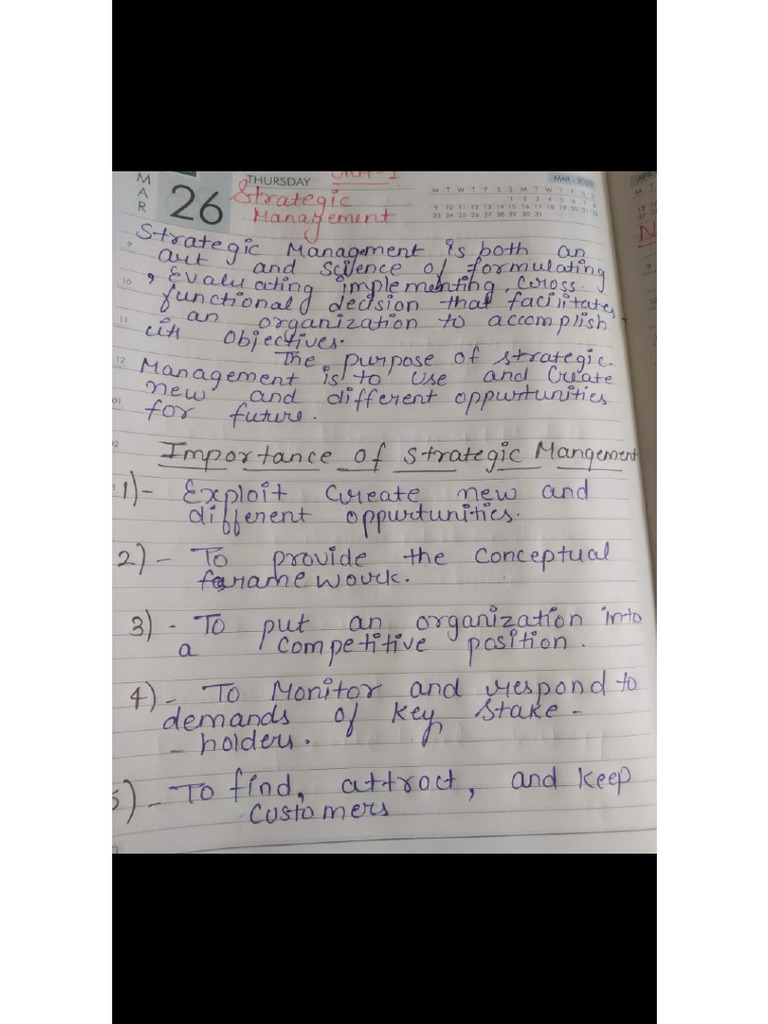 MAR
26
THURSDAY
Unit-1
Strategic
Management
MAR - 2020
M T W T F S S M T W T F S S
1 2 3 4 5 6 7 8
9 10 11 12 13 14 15 16 17 18 19 20 21 22
23 24 25 26 27 28 29 30 31
Strategic Management is both an
9 art and science of formulating
10 , Evaluating implementing, cross.
functional decision that facilitates
11 an organization to accomplish
objectives.
The purpose of strategic
12 Management is to use and Create
new and different oppurtunities
01 for future.
02 Importance of strategic Mangement
1)- Exploit create new and
different oppurtunities.
2) - To provide the conceptual
framework.
3) - To put an organization into
a competitive position.
4) - To Monitor and respond to
demands of key stake -
- holders.
5) - To find, attract, and keep
customers